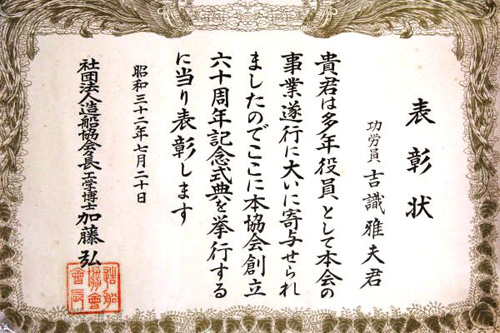 表彰状
功労員 吉識雅夫君
貴君は多年役員として本会の
事業遂行に大いに寄与せられ
ましたのでここに本協会創立
六十周年記念式典を挙行する
に当り表彰します
昭和三十二年七月二十日
社団法人造船協会会長 工学博士 加藤弘
造船協會會長